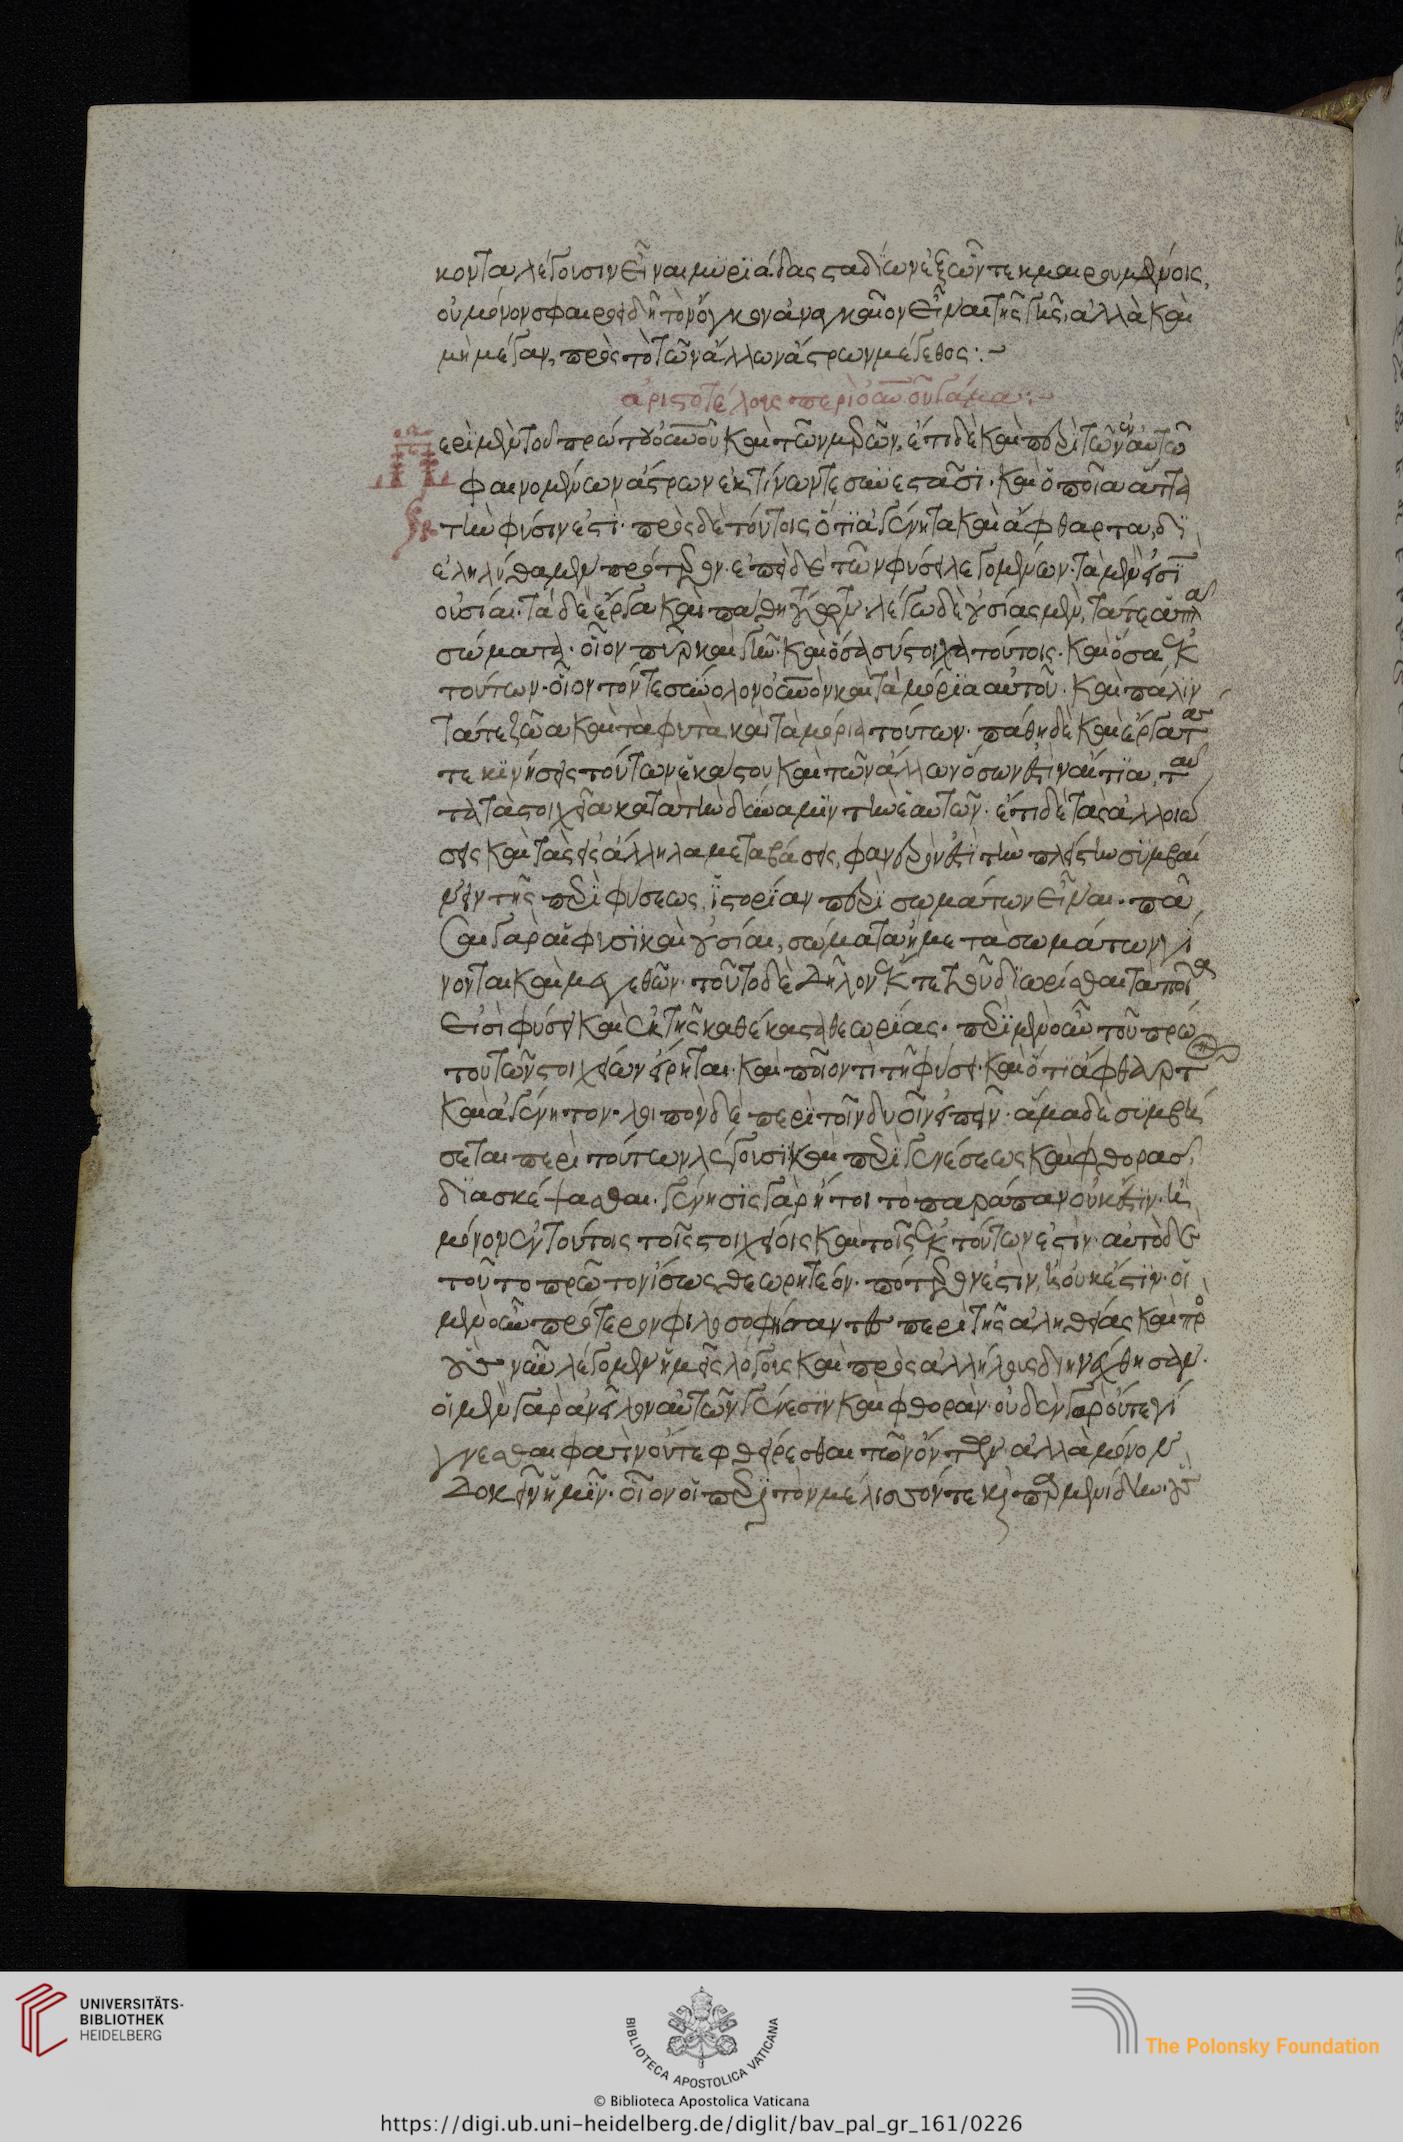 κοντα λέγουσιν εἶναι μυριάδας σταδίων ἐξ ὧν τεκμαιρουμένοις,
οὐ μόνον σφαιροειδῆ τὸν ὄγκον ἀναγκαῖον εἶναι τῆς γῆς, ἀλλὰ καὶ
μὴ μέγαν, πρὸς τὸ τῶν ἄλλων ἄστρων μέγεθος :~
ἀριστοτέλους περὶ οὐνοῦ γάμα :~
Περὶ μὲν τοῦ πρώτου οὐνοῦ καὶ τῶν μερῶν, ἔτι δὲ καὶ περὶ τῶν ἐν αὐτῷ
φαινομένων ἄστρων ἐκ τίνων τε συνεστᾶσι· καὶ ὁποῖα ἄττα
τὴν φύσιν ἐστί· πρὸς δὲ τούτοις ὅτι ἀγένητα καὶ ἄφθαρτα, δι
εληλύθαμεν πρότερον· ἐπεὶ δὲ τῶν φύσει λεγομένων· τὰ μέν ἐστιν
οὐσίαι· τὰ δὲ ἔργα καὶ πάθη τούτων· λέγω δὲ οὐσίας μὲν, τά τε ἁπλᾶ
σώματα· οἷον πῦρ καὶ γῆν· καὶ ὅσα σύστοιχα τούτοις· καὶ ὅσα ἐκ
τούτων· οἷον τόν τε σύνολον οὐνὸν καὶ τὰ μόρια αὐτοῦ· καὶ πάλιν
τά τε ζῶα καὶ τὰ φυτὰ καὶ τὰ μόρια τούτων· πάθη δὲ καὶ ἔργα τάς
τε κινήσεις τούτων ἑκάστου καὶ τῶν ἄλλων ὅσων ἐστὶν αἴτια, ταῦ
τα τὰ στοιχεῖα κατὰ τὴν δύναμιν τὴν ἑαυτῶν· ἔτι δὲ τὰς ἀλλοιώ
σεις καὶ τὰς εἰς ἄλληλα μεταβάσεις, φανερὸν ὅτι τὴν πλείστην συμβαί
νειν τῆς περὶ φύσεως ἱστορίαν περὶ σωμάτων εἶναι· πᾶ
σαι γὰρ αἱ φυσικαὶ οὐσίαι, σώματα ἢ μετὰ σωμάτων γί
νονται καὶ μεγεθῶν· τοῦτο δὲ δῆλον ἔκ τε τοῦ διωρίσθαι τὰ ποῖά
εἰσι φύσει καὶ ἐκ τῆς καθέκαστα θεωρίας· περὶ μὲν οὖν τοῦ πρώ
του τῶν στοιχείων εἴρηται· καὶ ποῖόν τι τῇ φύσει· καὶ ὅτι ἄφθαρτον
καὶ ἀγένητον· λοιπὸν δὲ περὶ τοῖν δυοῖν εἰπεῖν· ἅμα δὲ συμβή
σεται περὶ τούτων λέγουσι καὶ περὶ γενέσεως καὶ φθορᾶς
διασκέψασθαι· γένησις γὰρ ἤτοι τὸ παράπαν οὐκ ἔστιν· ἢ
μόνον ἐν τούτοις τοῖς στοιχείοις καὶ τοῖς ἐκ τούτων ἐστίν· αὐτὸ δὲ
τοῦτο πρῶτον ἴσως θεωρητέον· πότερόν ἐστιν, ἢ οὐκ ἔστιν· οἱ
μὲν οὖν πρότερον φιλοσοφήσαντες περὶ τῆς ἀληθείας καὶ πρὸς
οὓς νῦν λέγομεν ἡμεῖς λόγους καὶ πρὸς ἀλλήλους διηνέχθησαν·
οἱ μὲν γὰρ ἀνεῖλον αὐτῶν γένεσιν καὶ φθοράν· οὐδὲν γὰρ οὔτε γί
γνεσθαι φασὶν οὔτε φθείρεσθαι τῶν ὄντων· ἀλλὰ μόνον
δοκεῖν ἡμῖν· οἷον οἱ περὶ τὸν μέλισσόν τε καὶ παρμενίδην· οὓς
UNIVERSITÄTS-
BIBLIOTHEK
HEIDELBERG
BIBLIOTECA APOSTOLICA VATICANA
The Polonsky Foundation
© Biblioteca Apostolica Vaticana
https://digi.ub.uni-heidelberg.de/diglit/bav_pal_gr_161/0226